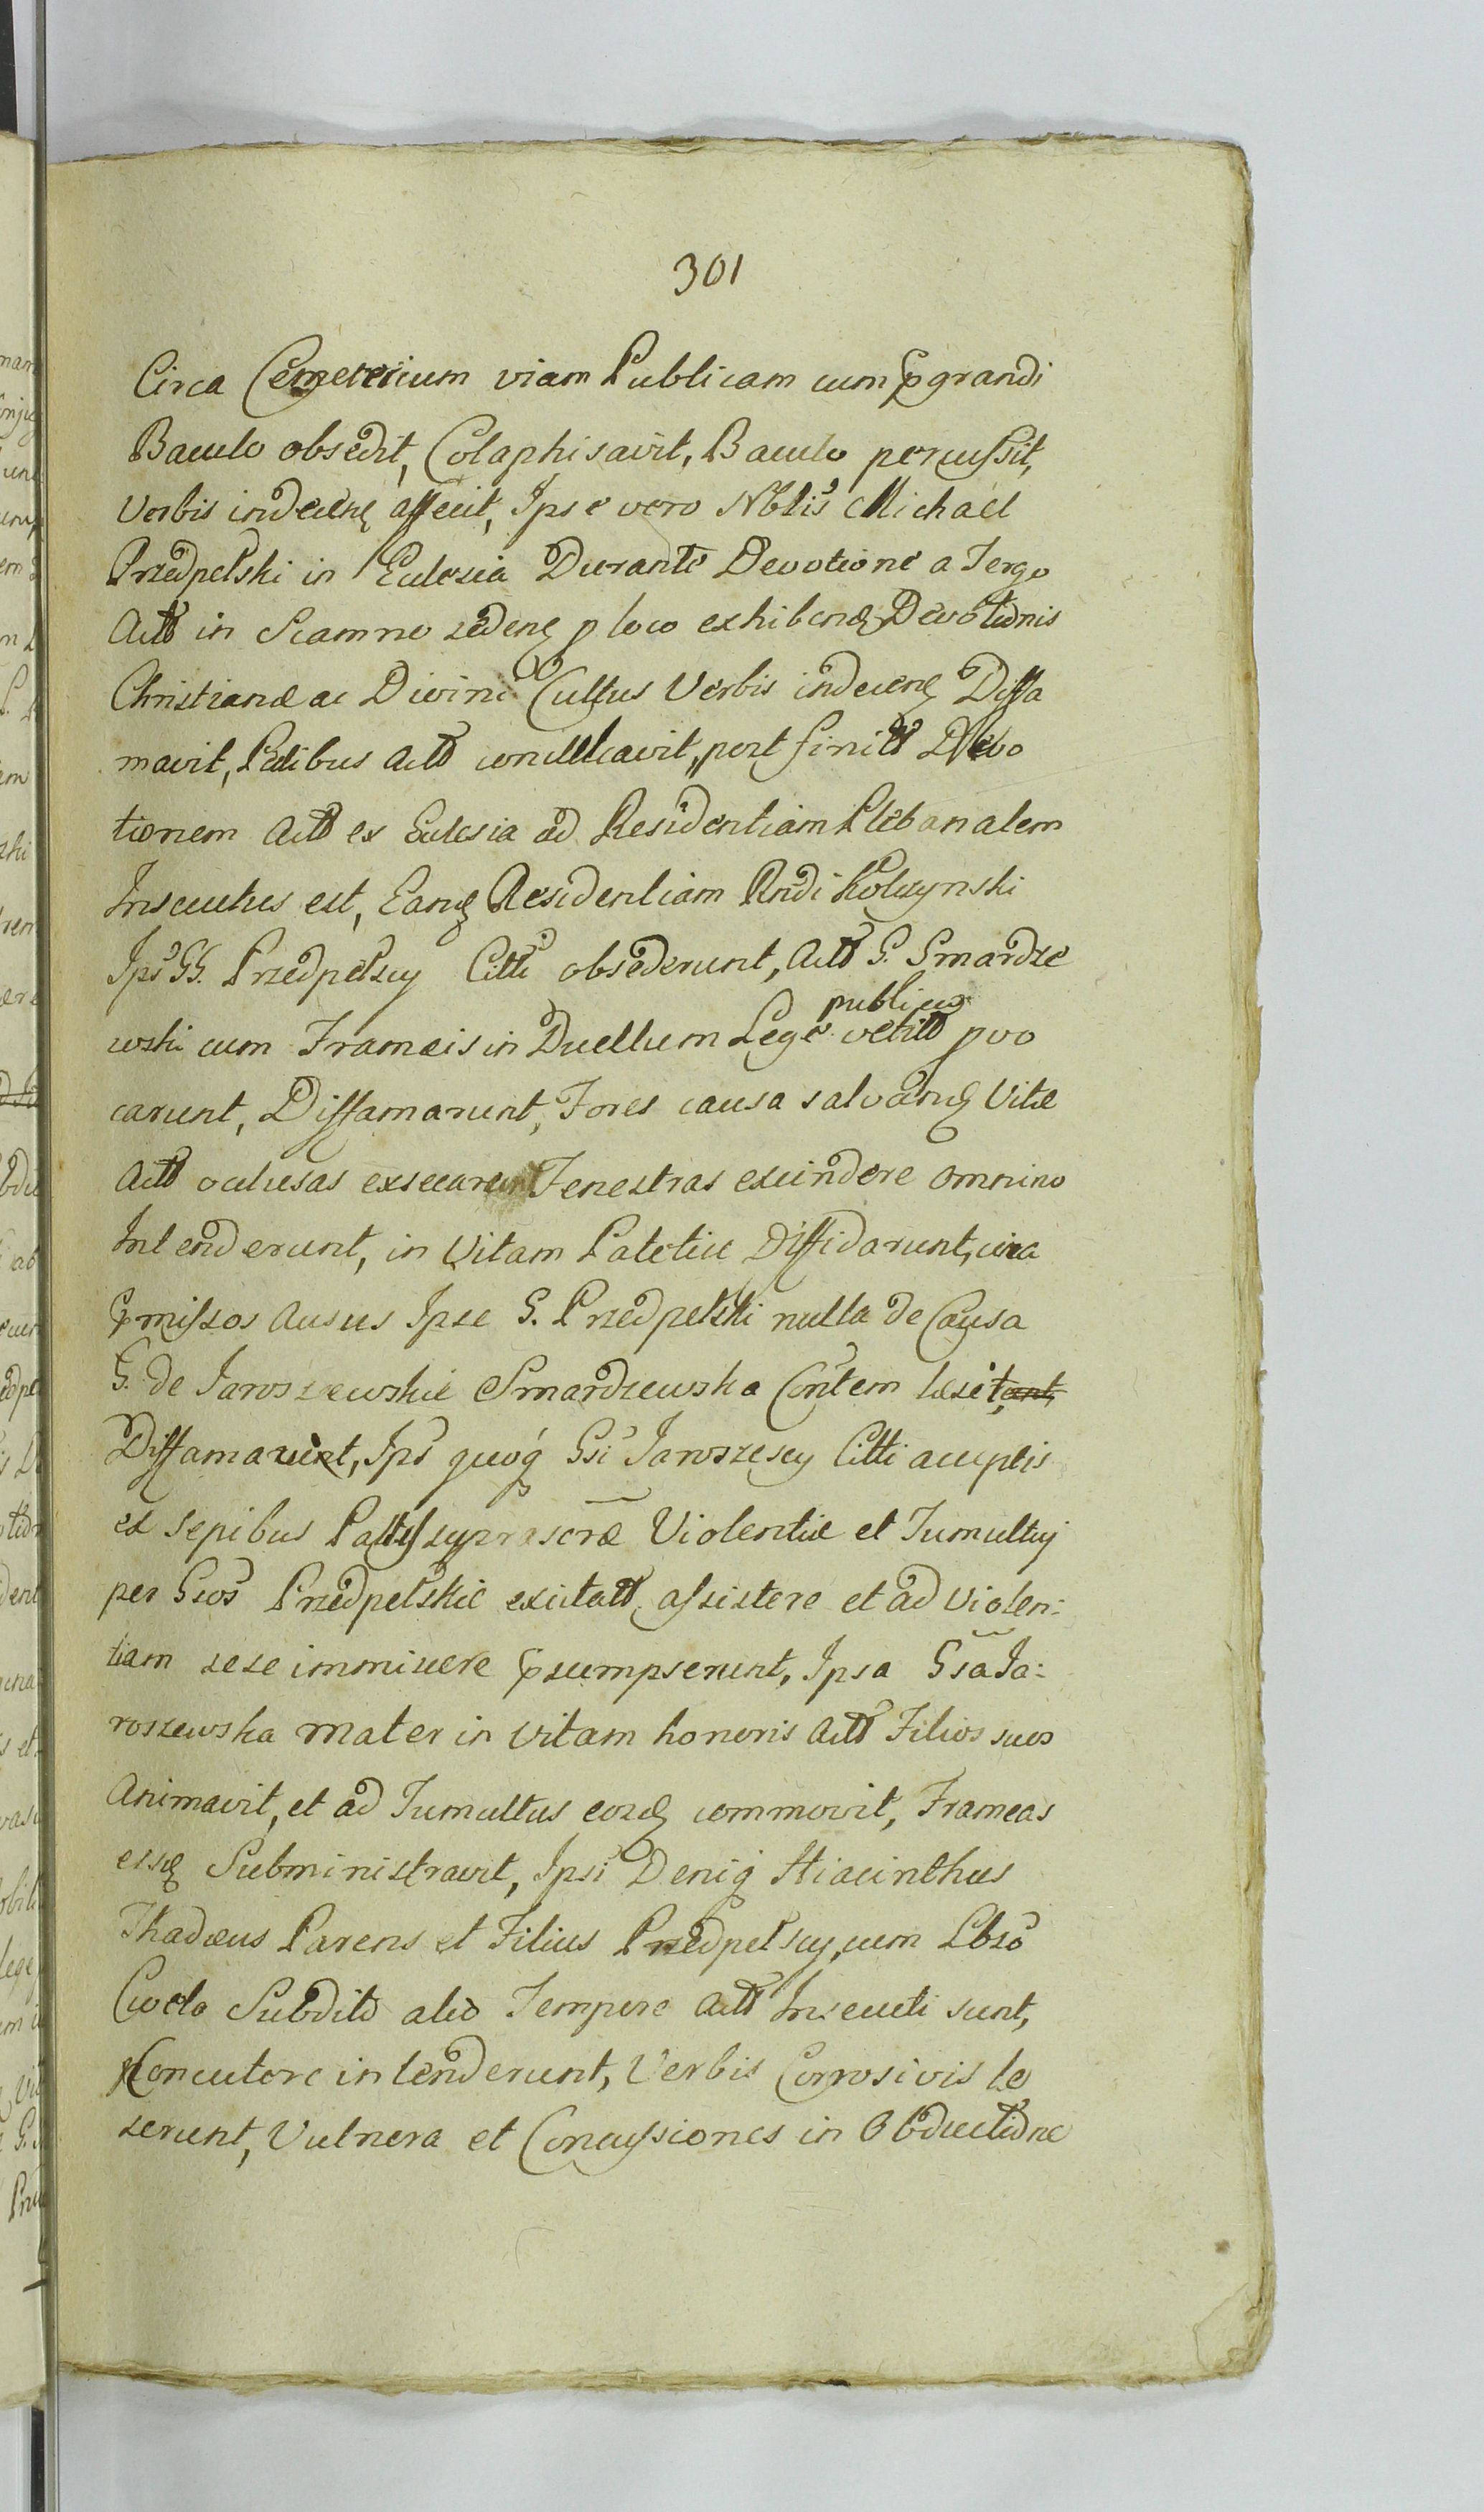 301
Circa Cemeterium viam Publicam cum pgrandi
Baculo obsedit, Colaphisavit, Baculo percussit,
Verbis indecen affecit, Ipse vero Nblis Michael
Przedpelski in Eclesia Durante Devotione a Tergo
Actt in Scamno seden p loco exhibend Devotionis
Christianæ ac Divini Cultus Verbis indecen Diffa
mavit, Pedibus Actt conculcavit, post finitt Devo
tionem Actt ex Eclesia ad Residentiam Plebanalem
Insecutus est, Eandq Residentiam Rndi Kolczynski
Ips GG. Przedpelscy Citti obsederunt, Actt G. Smardze
publicar
wski cum Frameis in Duellum Lege vetitt pvo
carunt, Diffamarunt, Fores causa salvand Vitæ
Actt oclusas exsecarunt Fenestras excindere omnino
Intenderunt, in Vitam Patetice Diffidarunt, circa
pmissos Ausus Ipse G. Przedpelski nulla de Causa
G. de Jaroszewskie Smardzewska Contem læsit,
Diffamavit, Ips quoq Gsi Jaroszescy Citti acceptis
ex sepibus suprascræ Violentiæ et Tumultuj
per Gsos Przedpelskie excitatt assistere et ad Violen:
tiam sese immiscere psumpserunt, Ipsa Gsa Ja:
roszewska Mater in Vitam honoris Actt Filios suos
Animavit, et ad Tumultus eosd commovit, Frameas
eisq Subministravit, Ipsi Deniq Hiacinthus
Thadæus Parens et Filius Przedpelscy, cum Lbso
Subdito alio Tempore Actt Insecuti sunt,
Concutere intenderunt, Verbis Corrosivis le
serunt, Vulnera et Concussiones in Obductione